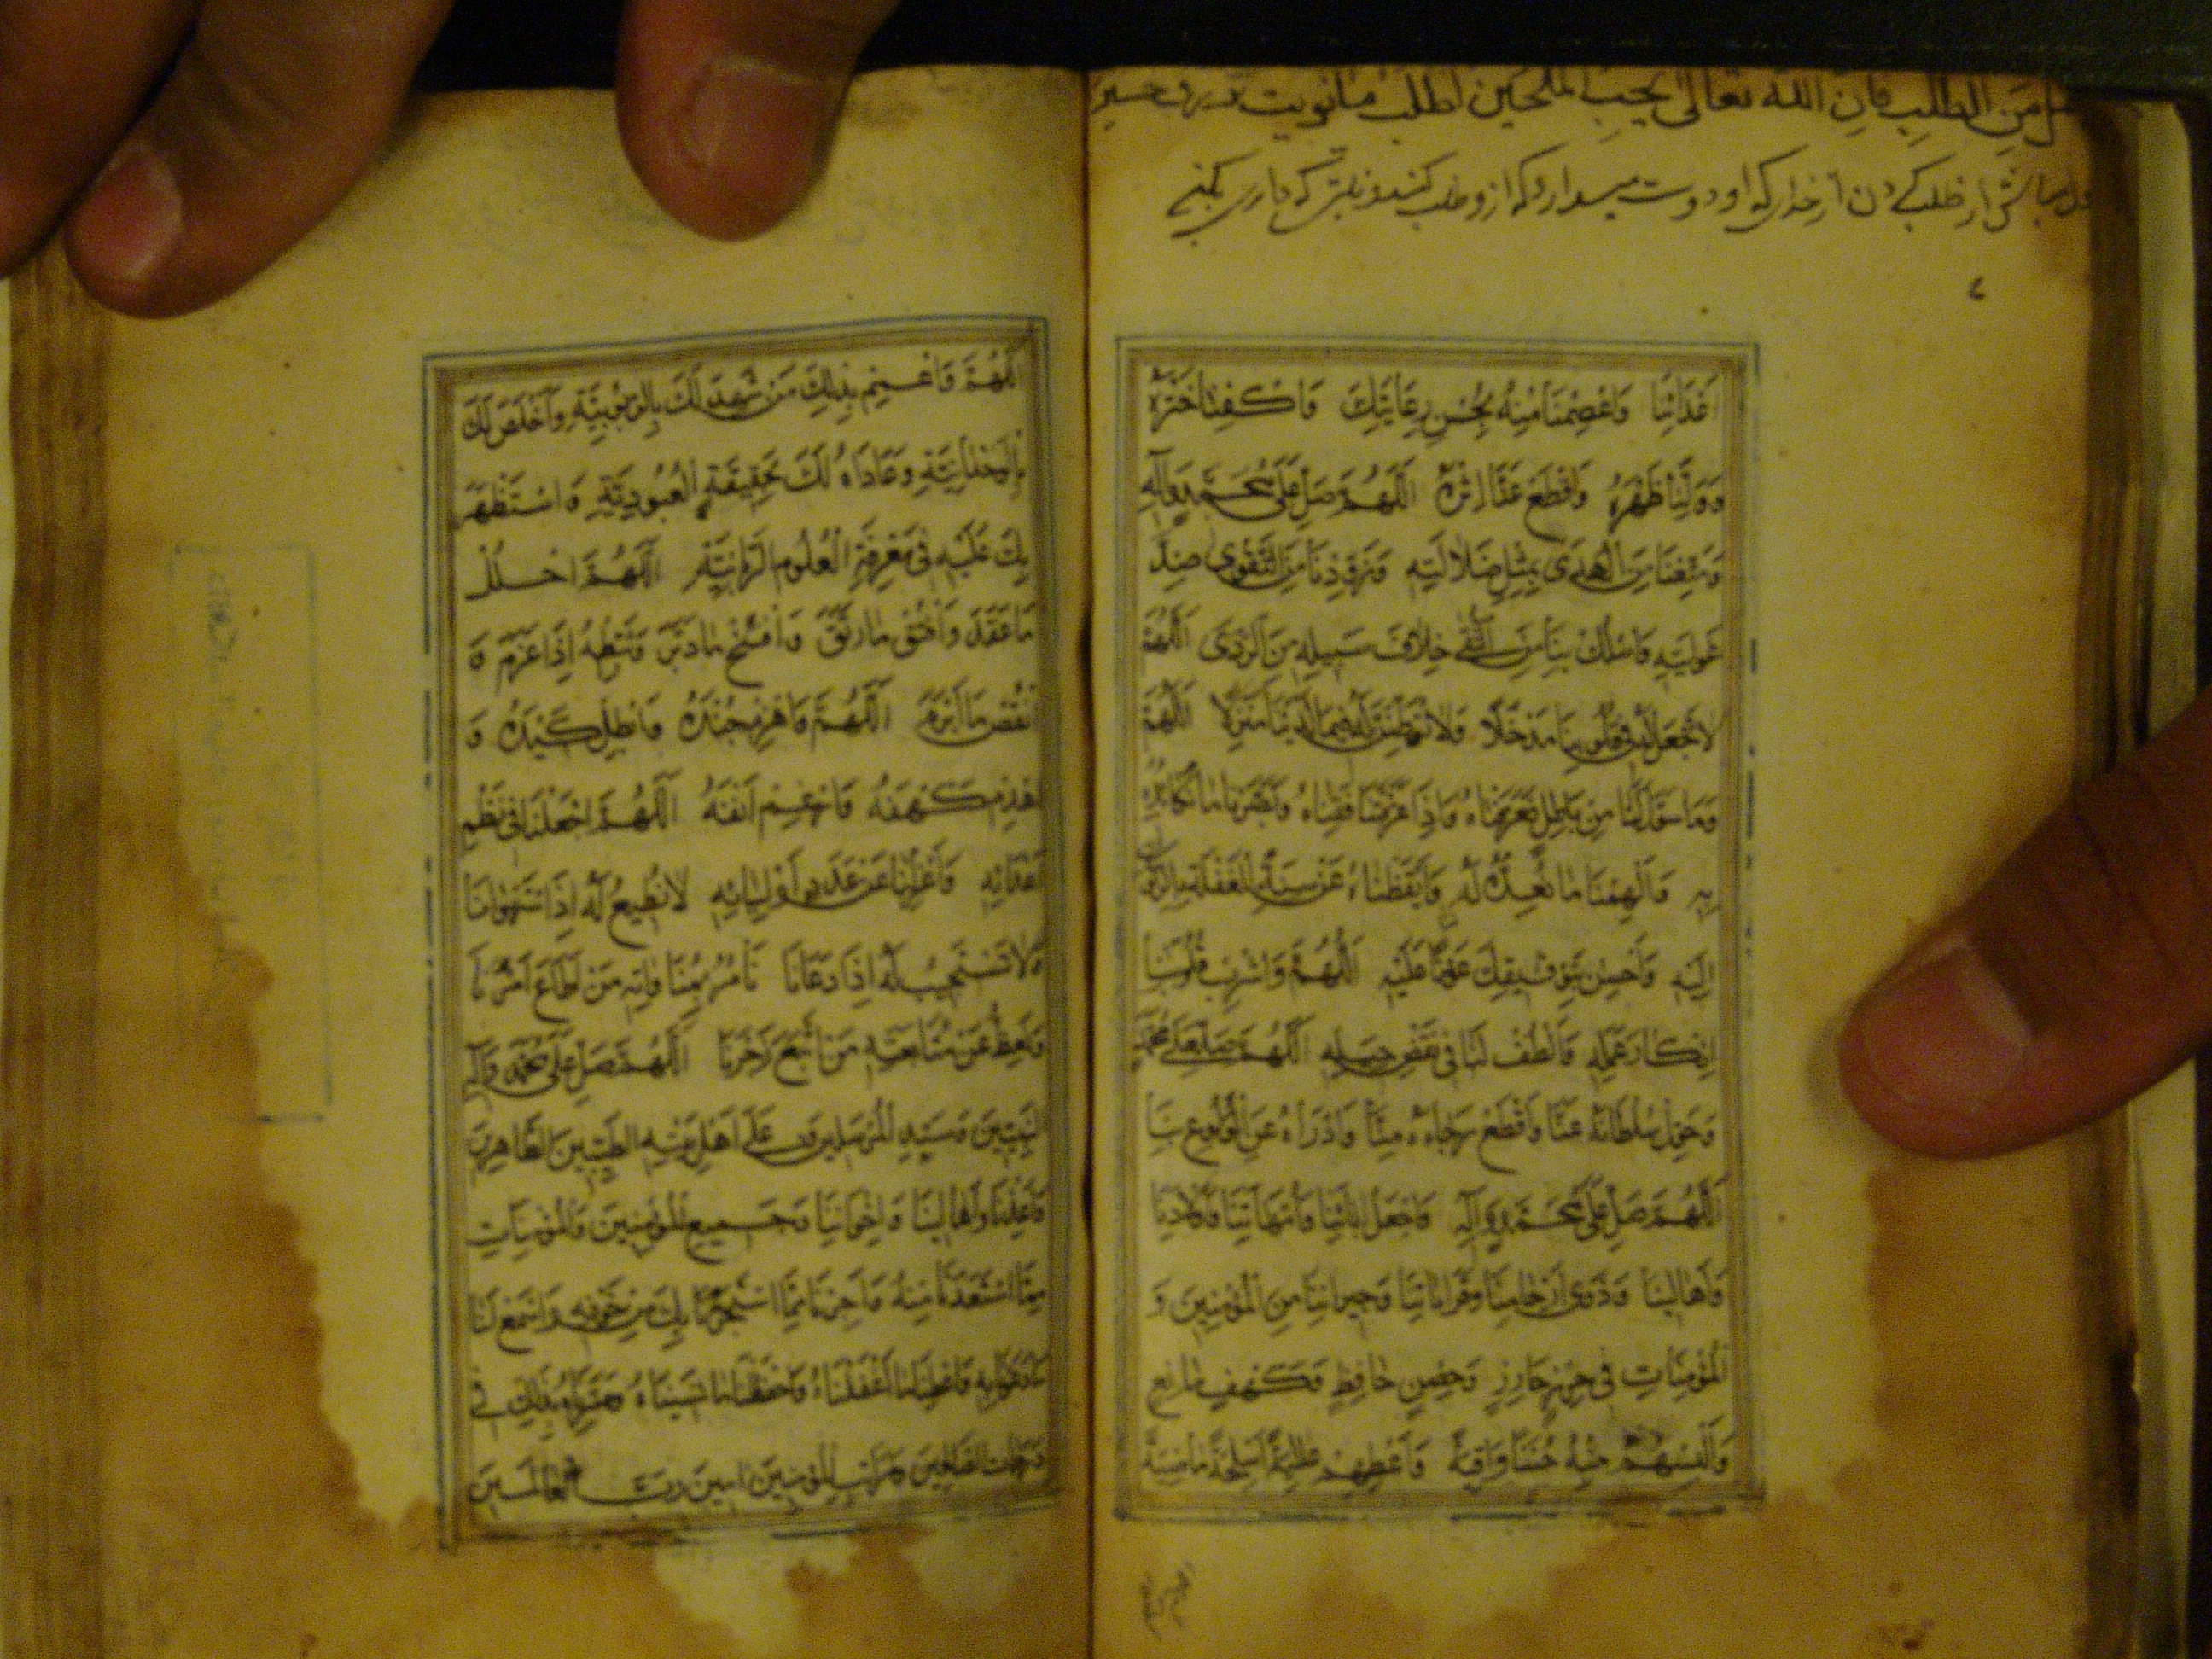 من الطلب فان الله تعالى يحب الملحين اطلب ما نويت
اَعْدَائِنَا وَاعْصِمْنَا مِنْهُ بِحُسْنِ رِعَايَتِكَ وَاكْفِنَا خَتْرَهُ
وَوَلِّنَا ظَهْرَهُ وَاقْطَعْ عَنَّا اِثْرَهُ اَللّٰهُمَّ صَلِّ عَلٰى مُحَمَّدٍ وَآلِهِ
وَمَتِّعْنَا مِنَ الْهُدٰى بِمِثْلِ ضَلَالَتِهِ وَزَوِّدْنَا مِنَ التَّقْوٰى ضِدَّ
غَوَايَتِهِ وَاسْلُكْ بِنَا مِنَ التُّقٰى خِلَافَ سَبِيلِهِ مِنَ الرَّدٰى اَللّٰهُمَّ
لَا تَجْعَلْ لَهُ فِى قُلُوبِنَا مَدْخَلًا وَلَا تُوطِنَنَّ لَهُ فِيمَا لَدَيْنَا مَنْزِلًا اَللّٰهُمَّ
وَمَا سَوَّلَ لَنَا مِنْ بَاطِلٍ فَعَرِّفْنَاهُ وَاِذَا عَرَّفْتَنَاهُ فَقِنَاهُ وَبَصِّرْنَا مَا نُكَايِدُهُ
بِهِ وَاَلْهِمْنَا مَا نُعِدُّهُ لَهُ وَاَيْقِظْنَا عَنْ سِنَةِ الْغَفْلَةِ بِالرُّكُونِ
اِلَيْهِ وَاَحْسِنْ بِتَوْفِيقِكَ عَوْنَنَا عَلَيْهِ اَللّٰهُمَّ وَاَشْرِبْ قُلُوبَنَا
اِنْكَارَ عَمَلِهِ وَالْطُفْ لَنَا فِى نَقْضِ حِيَلِهِ اَللّٰهُمَّ صَلِّ عَلٰى مُحَمَّدٍ
وَحَوِّلْ سُلْطَانَهُ عَنَّا وَاقْطَعْ رَجَاءَهُ مِنَّا وَادْرَأْهُ عَنِ الْوُلُوعِ بِنَا
اَللّٰهُمَّ صَلِّ عَلٰى مُحَمَّدٍ وَآلِهِ وَاجْعَلْ آبَائَنَا وَاُمَّهَاتِنَا وَاَوْلَادَنَا
وَاَهَالِينَا وَذَوِى اَرْحَامِنَا وَقَرَابَاتِنَا وَجِيرَانَنَا مِنَ الْمُؤْمِنِينَ وَ
الْمُؤْمِنَاتِ فِى حِرْزٍ حَارِزٍ وَحِصْنٍ حَافِظٍ وَكَهْفٍ مَانِعٍ
وَاَلْبِسْهُمْ مِنْهُ جُنَنًا وَاقِيَةً وَاَعْطِهِمْ عَلَيْهِ اَسْلِحَةً مَاضِيَةً
اَللّٰهُمَّ وَاعْمُمْ بِذٰلِكَ مَنْ شَهِدَ لَكَ بِالرُّبُوبِيَّةِ وَاَخْلَصَ لَكَ
بِالْوَحْدَانِيَّةِ وَعَادَاهُ لَكَ بِحَقِيقَةِ الْعُبُودِيَّةِ وَاسْتَظْهَرَ
بِكَ عَلَيْهِ فِى مَعْرِفَةِ الْعُلُومِ الرَّبَّانِيَّةِ اَللّٰهُمَّ احْلُلْ
مَا عَقَدَ وَافْتُقْ مَا رَتَقَ وَافْسَخْ مَا دَبَّرَ وَثَبِّطْهُ اِذَا عَزَمَ وَ
انْقُضْ مَا اَبْرَمَ اَللّٰهُمَّ وَاهْزِمْ جُنْدَهُ وَاَبْطِلْ كَيْدَهُ وَ
اهْدِمْ كَهْفَهُ وَاَرْغِمْ اَنْفَهُ اَللّٰهُمَّ اجْعَلْنَا فِى نَظْمِ
اَعْدَائِهِ وَاعْزِلْنَا عَنْ عِدَادِ اَوْلِيَائِهِ لَا نُطِيعُ لَهُ اِذَا اسْتَهْوَانَا
وَلَا نَسْتَجِيبُ لَهُ اِذَا دَعَانَا نَأْمُرُ بِمُنَاوَاتِهِ مَنْ اَطَاعَ اَمْرَنَا
وَنَعِظُ عَنْ مُتَابَعَتِهِ مَنِ اتَّبَعَ زَجْرَنَا اَللّٰهُمَّ صَلِّ عَلٰى مُحَمَّدٍ
النَّبِيِّينَ وَسَيِّدِ الْمُرْسَلِينَ وَعَلٰى اَهْلِ بَيْتِهِ الطَّيِّبِينَ الطَّاهِرِينَ
وَاَعِذْنَا وَاَهَالِينَا وَاِخْوَانَنَا وَجَمِيعَ الْمُؤْمِنِينَ وَالْمُؤْمِنَاتِ
مِمَّا اسْتَعَذْنَا مِنْهُ وَاَجِرْنَا مِمَّا اسْتَجَرْنَا بِكَ مِنْ خَوْفِهِ وَاسْمَعْ لَنَا
مَا دَعَوْنَا بِهِ وَاَعْطِنَا مَا اَغْفَلْنَاهُ وَاحْفَظْ لَنَا مَا نَسِينَاهُ وَصَيِّرْنَا بِذٰلِكَ فِى
دَرَجَاتِ الصَّالِحِينَ وَمَرَاتِبِ الْمُؤْمِنِينَ آمِينَ رَبَّ الْعَالَمِينَ